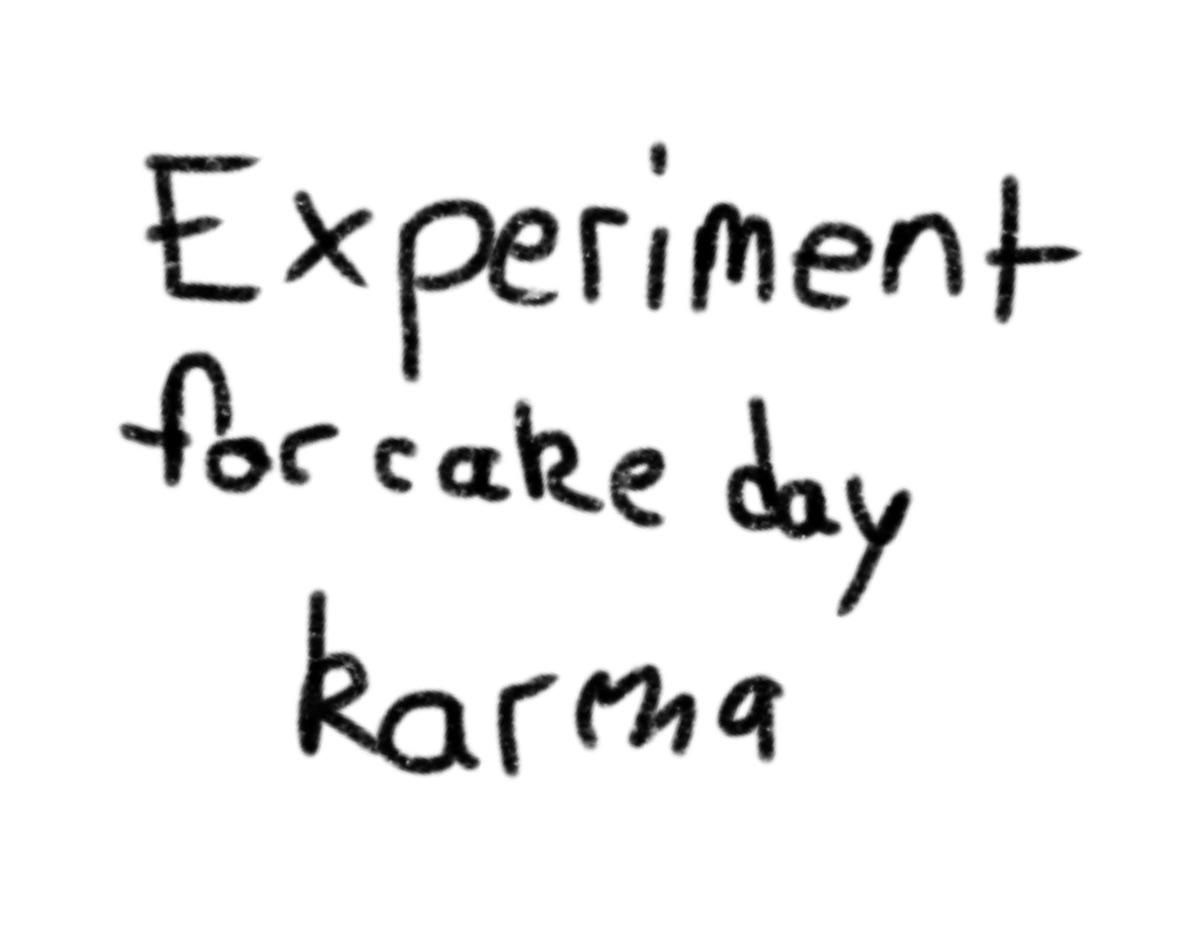 Experiment
for cake day
karma